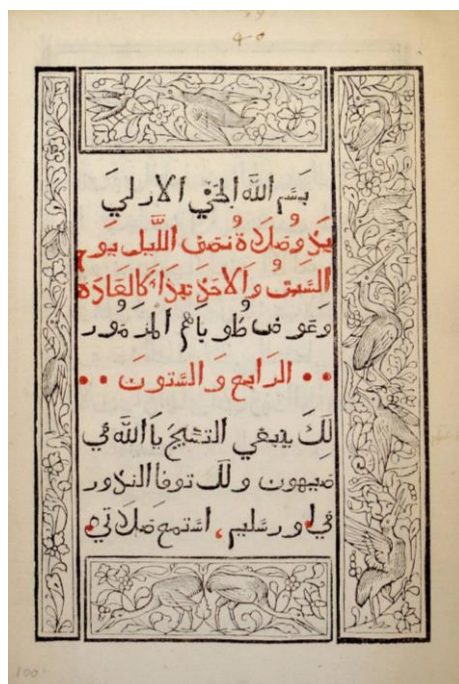 بسم الله الحي الازلي
بدو صلاة نصف الليل يوم
السبت والاحد تبدا كالعادة
وعوض طوباهم المزمور
•• الرابع والستون ••
لك ينبغي التسبيح يا الله في
صيهون ولك توفا النذور
في اورسليم، استمع صلاتي
100